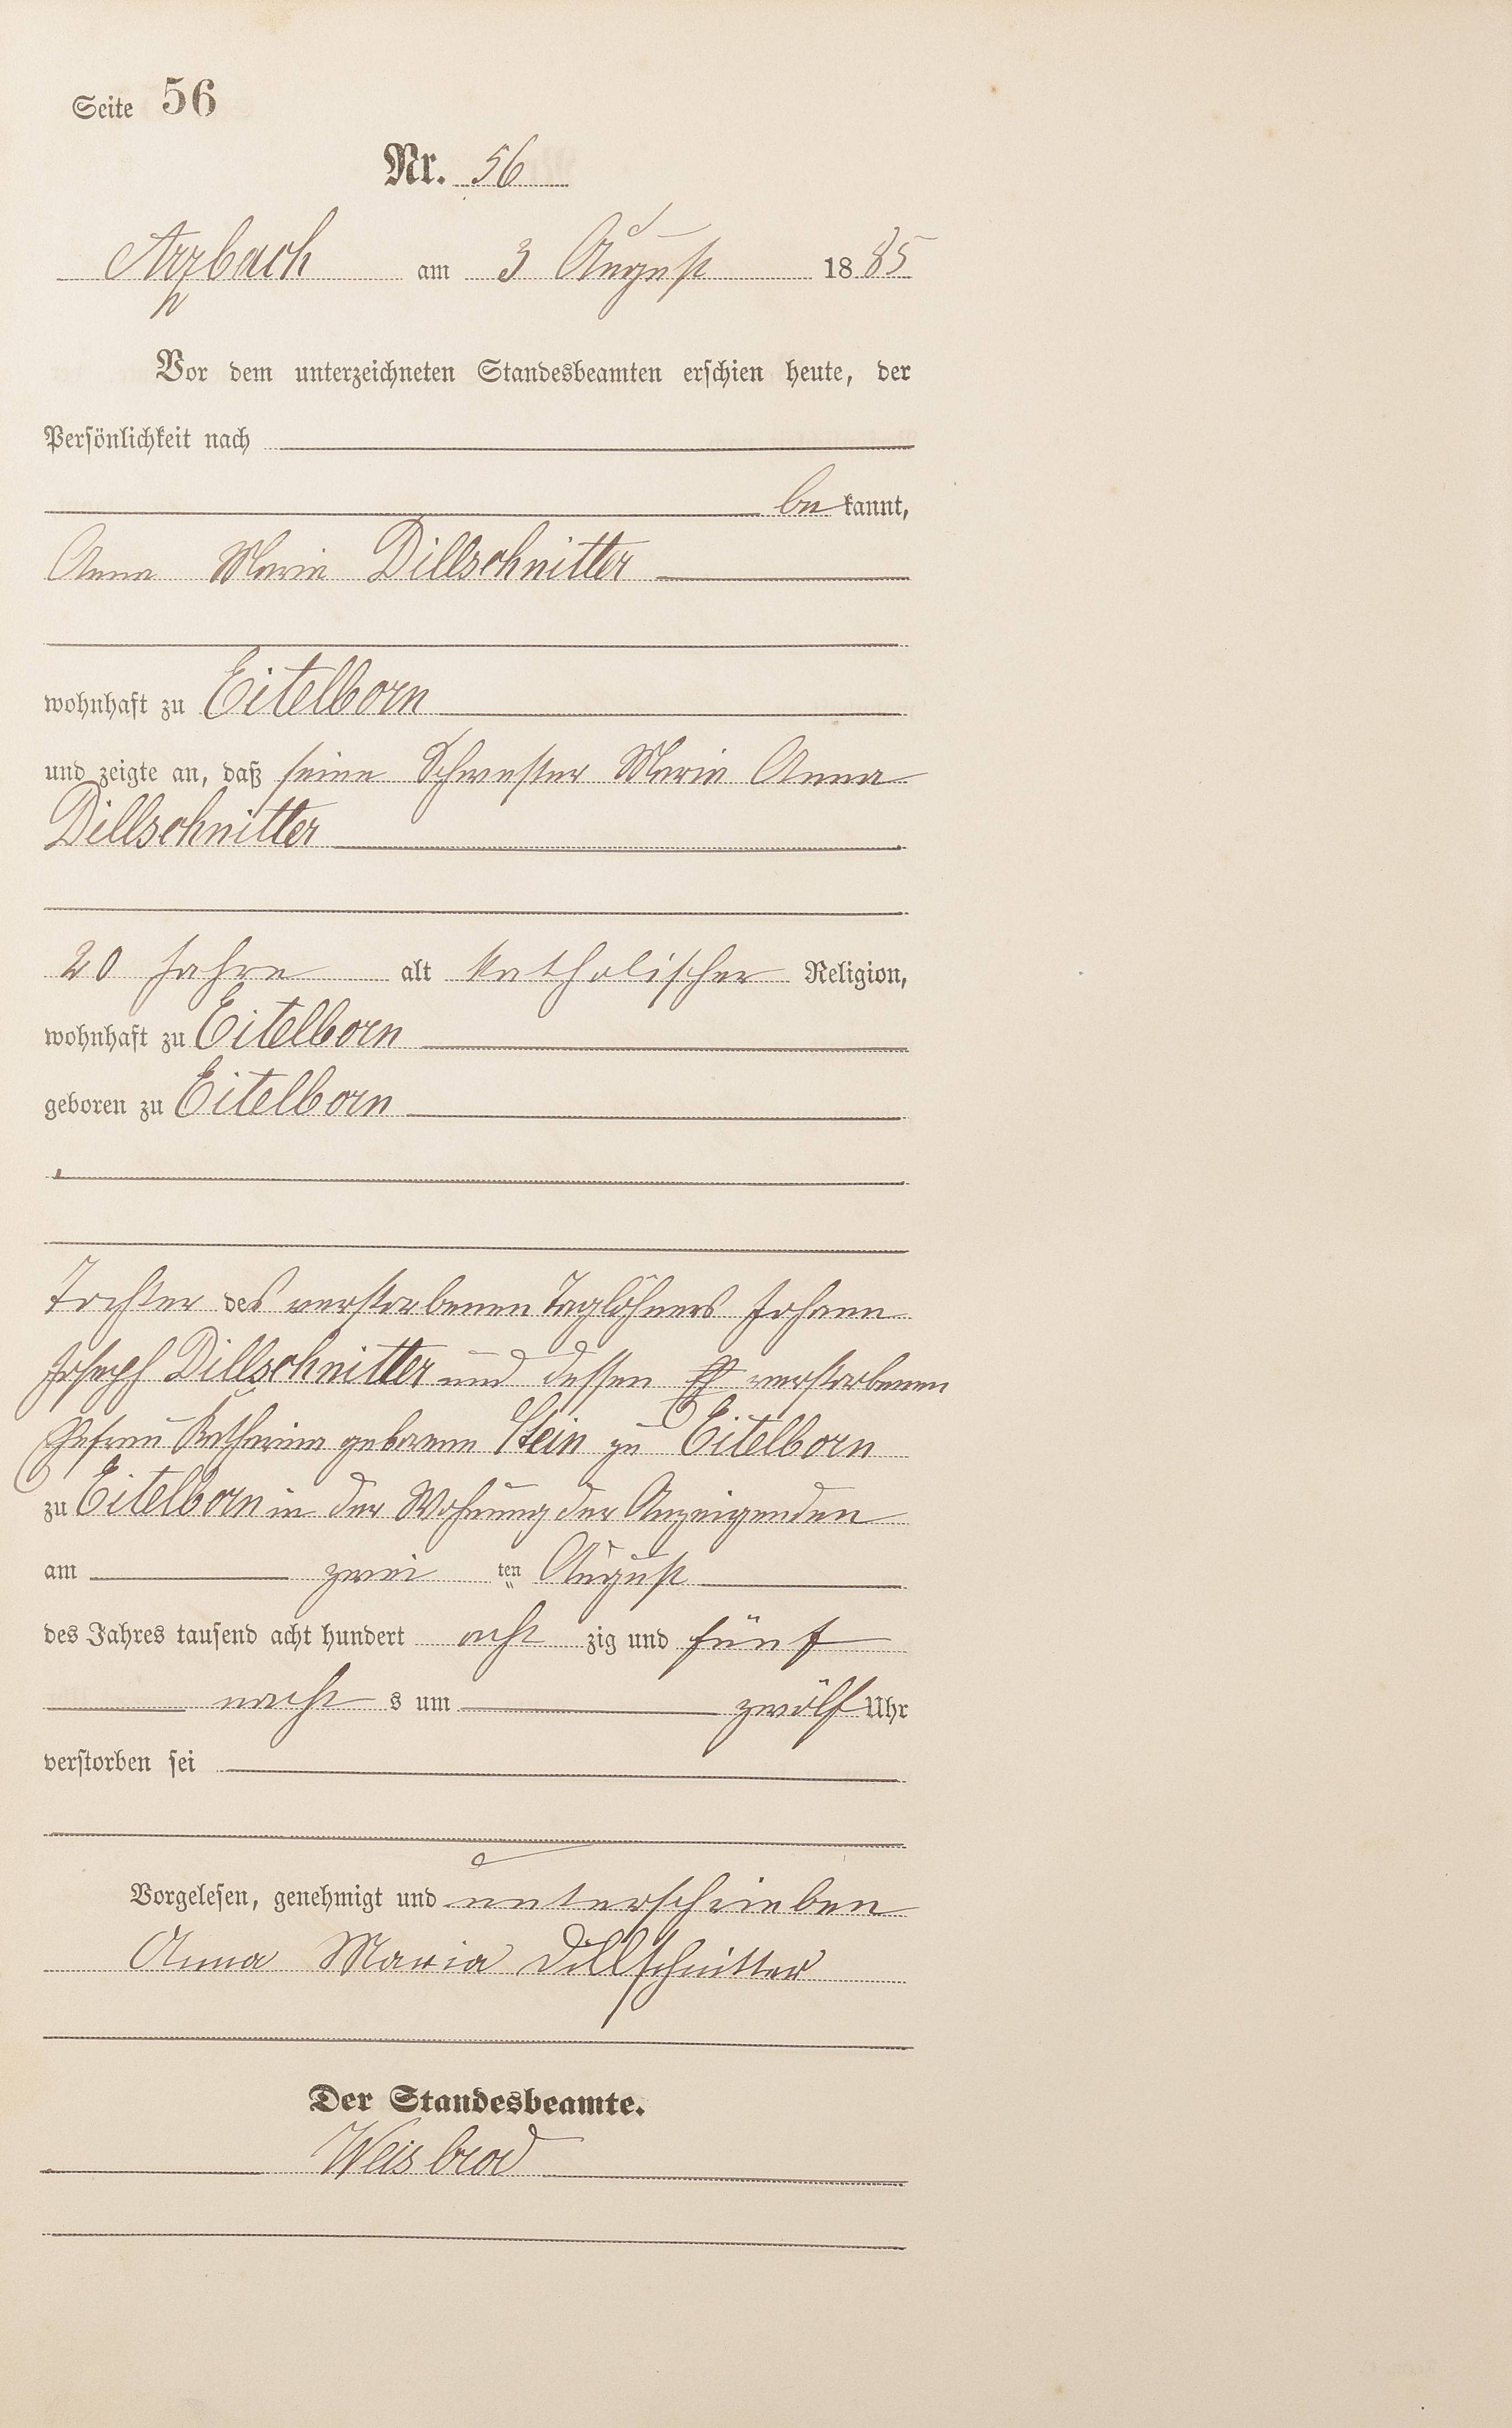 Seite 56
Nr. 56
Arzbach am 3 August 1885
Vor dem unterzeichneten Standesbeamten erschien heute, der
Persönlichkeit nach
bekannt,
Anna Maria Dillschnitter
wohnhaft zu Eitelborn
und zeigte an, daß seine Schwester Maria Anna
Dillschnitter
20 Jahre alt katholischer Religion,
wohnhaft zu Eitelborn
geboren zu Eitelborn
Tochter des verstorbenen Taglöhners Johann
Joseph Dillschnitter und dessen verstorbenen
Ehefrau Katharina geborene Stein zu Eitelborn
zu Eitelborn in der Wohnung der Anzeigenden
am zwei ten August
des Jahres tausend acht hundert acht zig und fünf
nacht s um zwölf Uhr
verstorben sei
Vorgelesen, genehmigt und unterschrieben
Anna Maria Dillschnitter
Der Standesbeamte.
Weisbrod